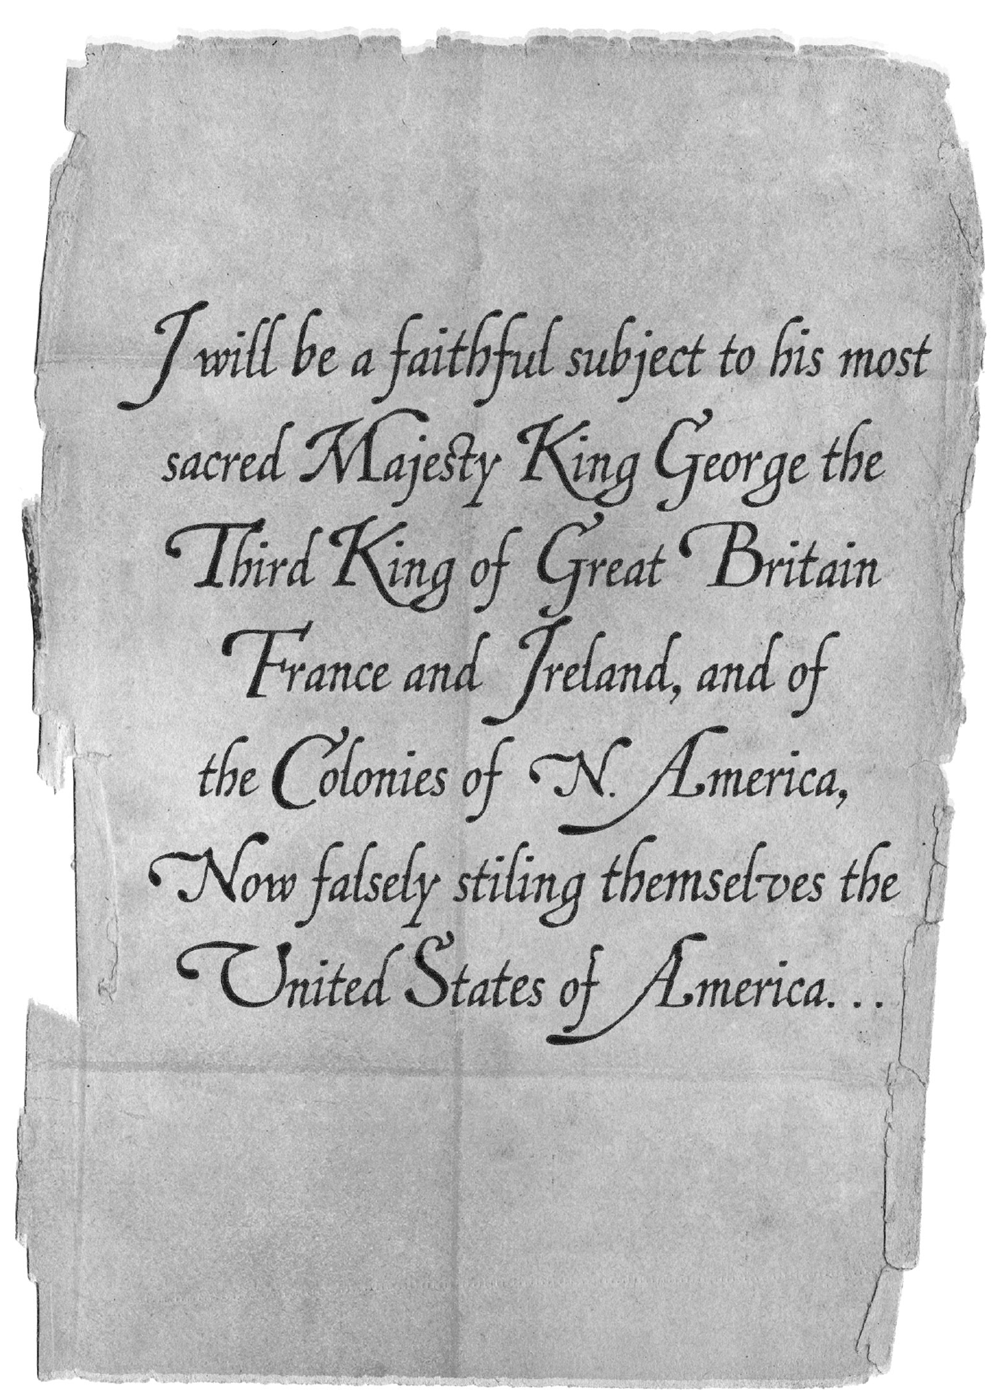 I will be a faithful subject to his most
sacred Majesty King George the
Third King of Great Britain
France and Ireland, and of
the Colonies of N. America,
Now falsely stiling themselves the
United States of America. . .